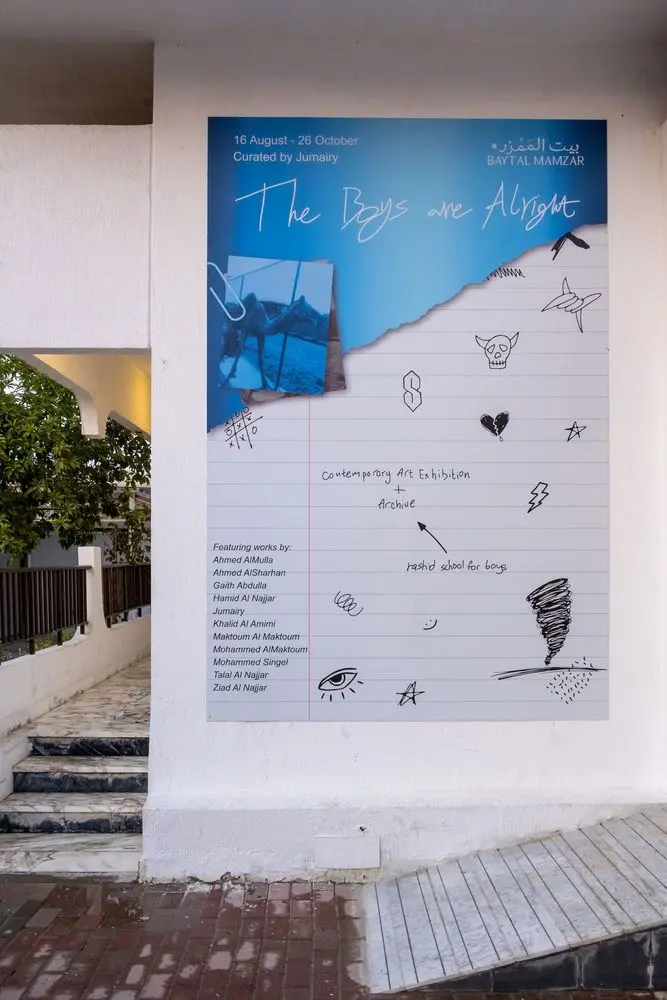 16 August - 26 October
Curated by Jumairy
بيت الممزر
BAYT AL MAMZAR
The Boys are Alright
Contemporary Art Exhibition
+
Archive
rashid school for boys
Featuring works by:
Ahmed AlMulla
Ahmed AlSharhan
Gaith Abdulla
Hamid Al Najjar
Jumairy
Khalid Al Amimi
Maktoum Al Maktoum
Mohammed AlMaktoum
Mohammed Singel
Talal Al Najjar
Ziad Al Najjar